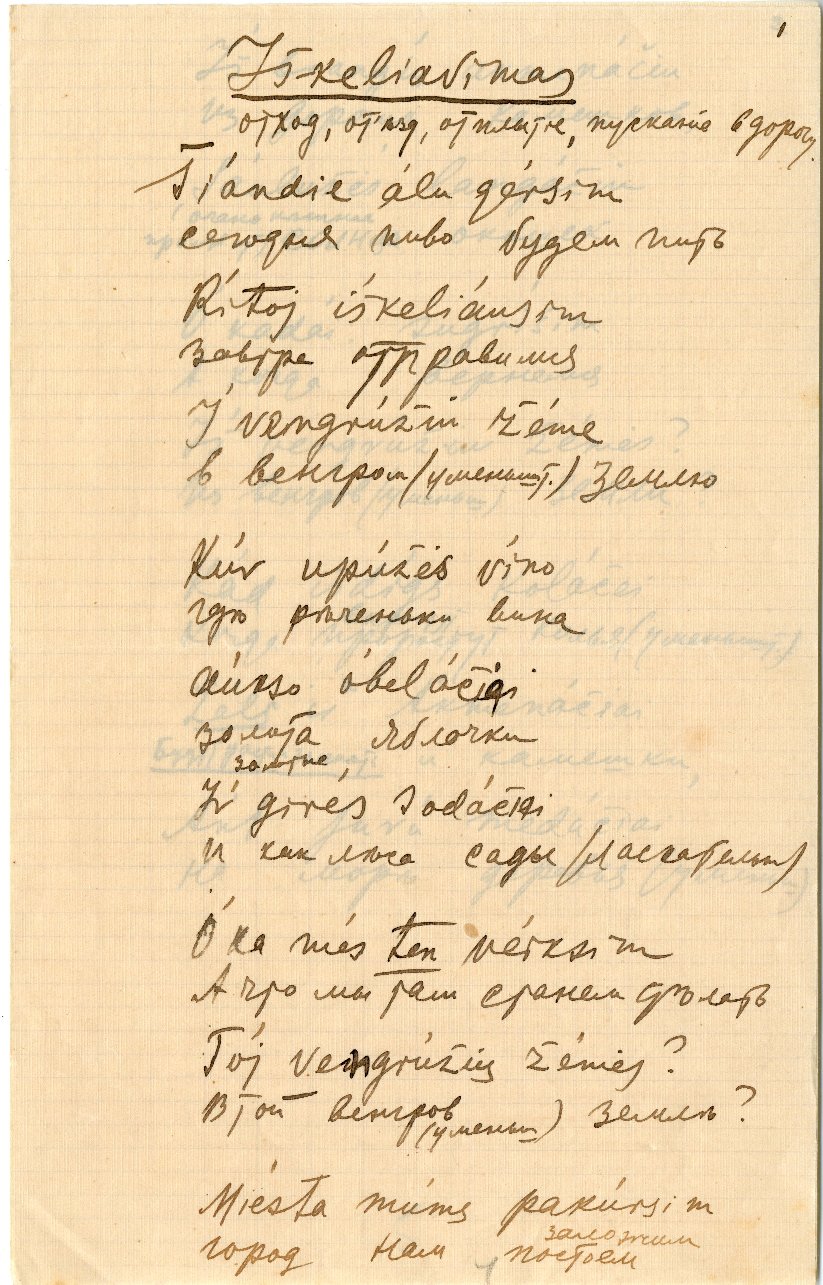 1
Iškeliavimas
отход, отъѣзд, отплытіе, пусканіе в дорогу.
Šiándie álu gérsim
сегодня пиво будем пить
Rítoj iškeliáusim
завтра отправимся
Į vengrúžiu žéme
в венгров (уменьшит.) землю
Kúr upúžės víno
гдѣ рѣченьки вина
áukso óbeláčiai
золота яблочки
золотые
Ir girės sodáčiai
и как лѣса сады (ласкательн)
Ó ka mės ten véiksim
А что мы там станем дѣлать
Tój vengrúžių žémėj?
В той венгров землѣ?
(уменьш)
Miésta múms pakúrsim
город нам построем
заложим